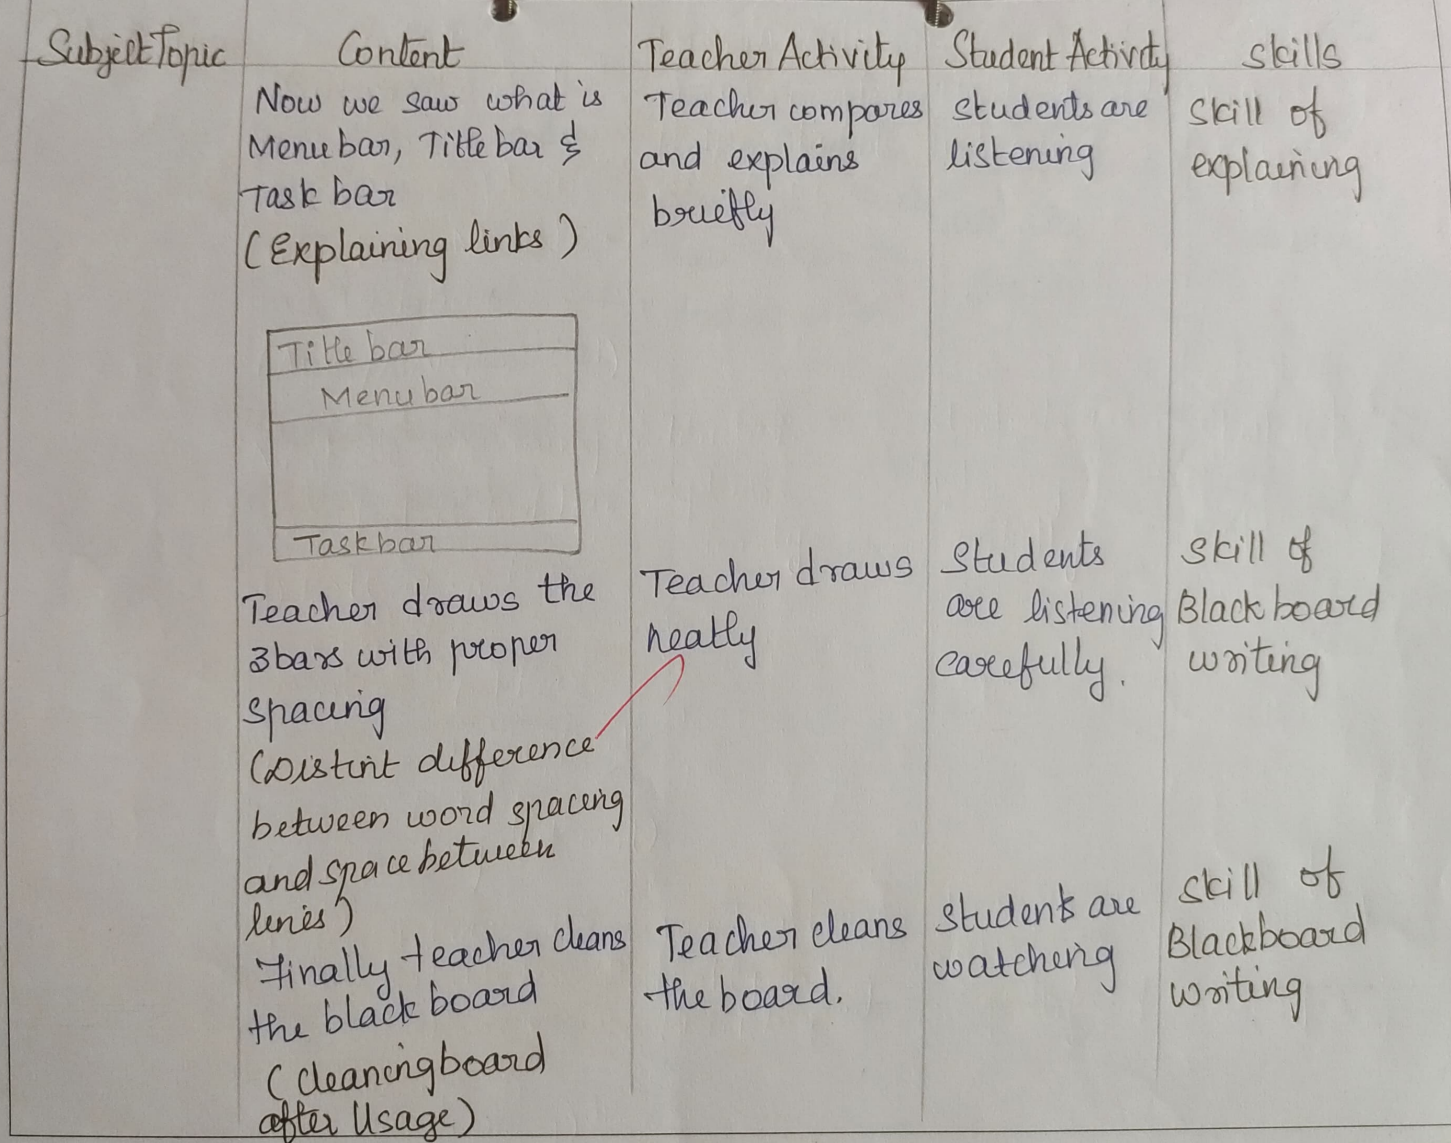 Subject Topic Content Teacher Activity Student Activity Skills
Now we saw what is
Menu bar, Title bar &
Task bar
(Explaining links)
Teacher compares
and explains
briefly
Students are
listening
Skill of
explaining
Title bar
Menu bar
Task bar
Teacher draws the
3 bars with proper
spacing
(Distint difference
between word spacing
and space between
lines)
Teacher draws
neatly
Students
are listening
carefully.
Skill of
Black board
writing
Finally teacher cleans
the black board
(Cleaning board
after Usage)
Teacher cleans
the board.
Students are
watching
Skill of
Blackboard
writing